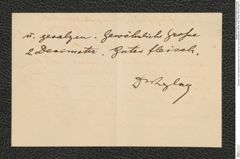 u. gesalzen. Gewöhnliche Grösse
2 Decimeter. Gutes Fleisch.